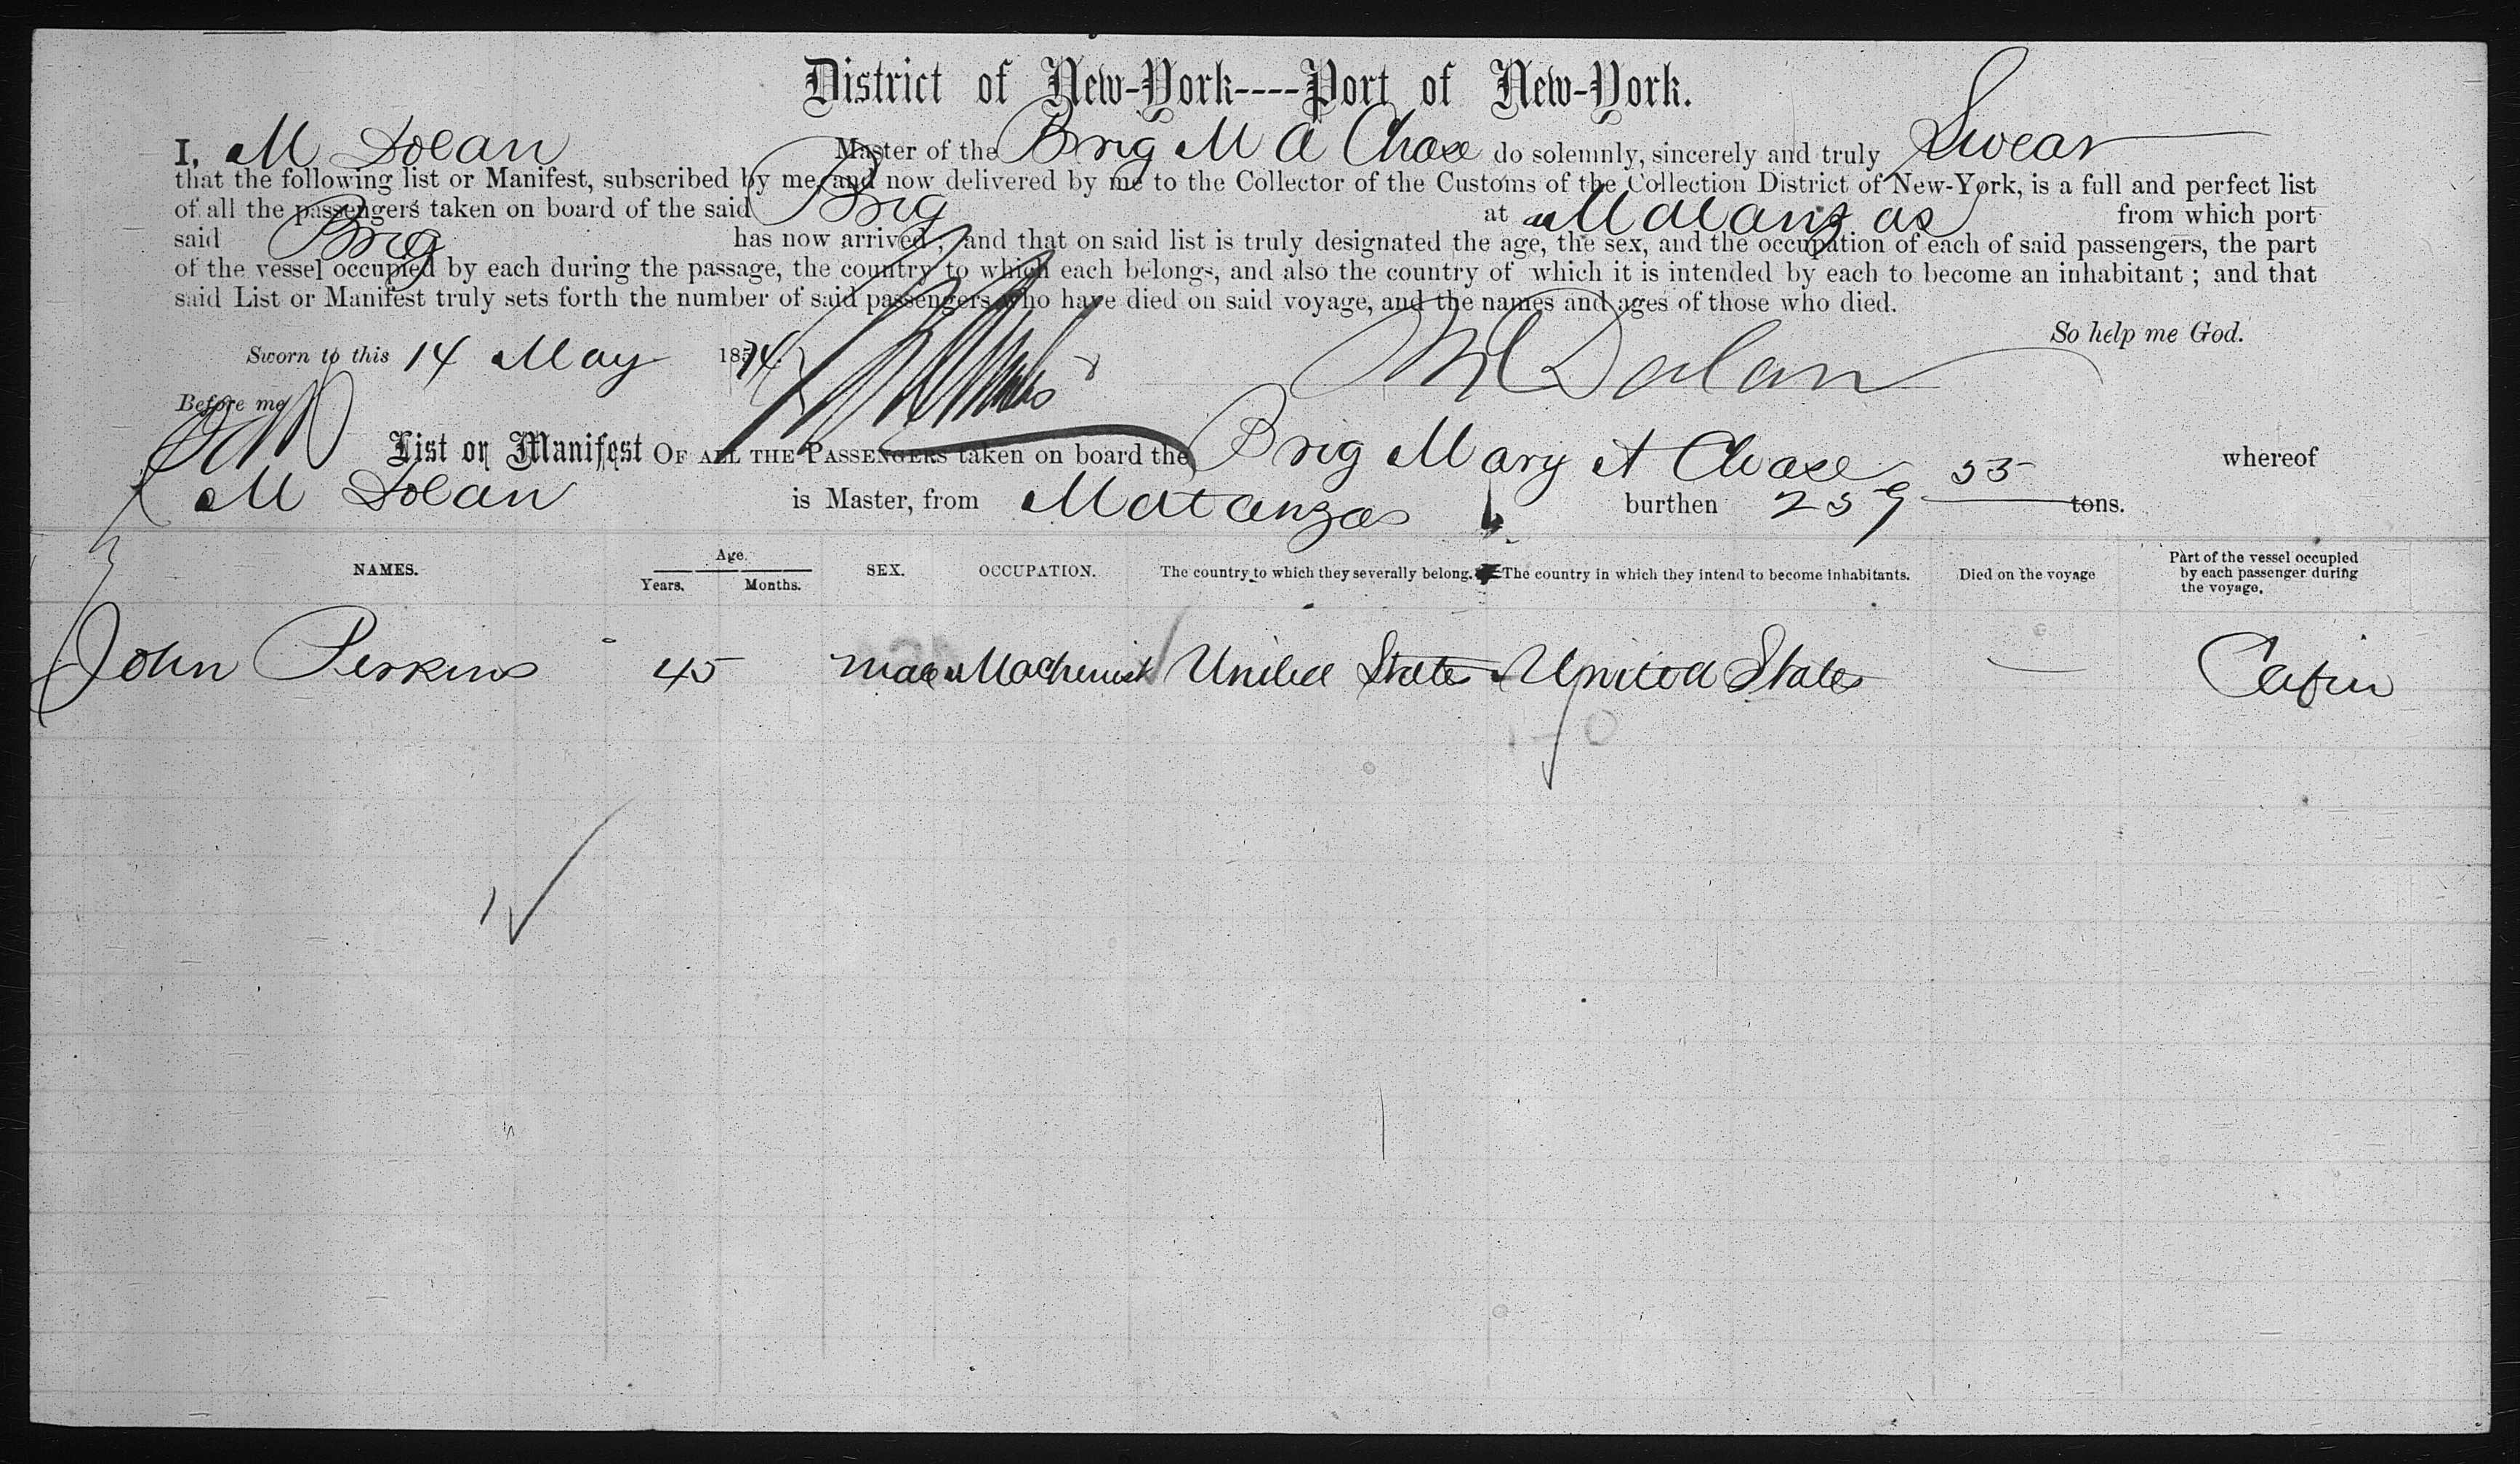 District of New-York----Port of New-York.
I, M Dolan Master of the Brig M A Chase do solemnly, sincerely and truly Swear
that the following list or Manifest, subscribed by me, and now delivered by me to the Collector of the Customs of the Collection District of New-York, is a full and perfect list
of all the passengers taken on board of the said Brig at Matanzas from which port
said Brig has now arrived; and that on said list is truly designated the age, the sex, and the occupation of each of said passengers, the part
of the vessel occupied by each during the passage, the country to which each belongs, and also the country of which it is intended by each to become an inhabitant; and that
said List or Manifest truly sets forth the number of said passengers who have died on said voyage, and the names and ages of those who died.
So help me God.
Sworn to this 14 May 1874 M Dolan
Before me
List or Manifest OF ALL THE PASSENGERS taken on board the Brig Mary A Chase whereof
M Dolan is Master, from Matanzas burthen 259 55 tons.
NAMES. Age. Years. Months. SEX. OCCUPATION. The country to which they severally belong. The country in which they intend to become inhabitants. Died on the voyage Part of the vessel occupied by each passenger during the voyage.
John Perkins 45 male Machinist United States United States — Cabin